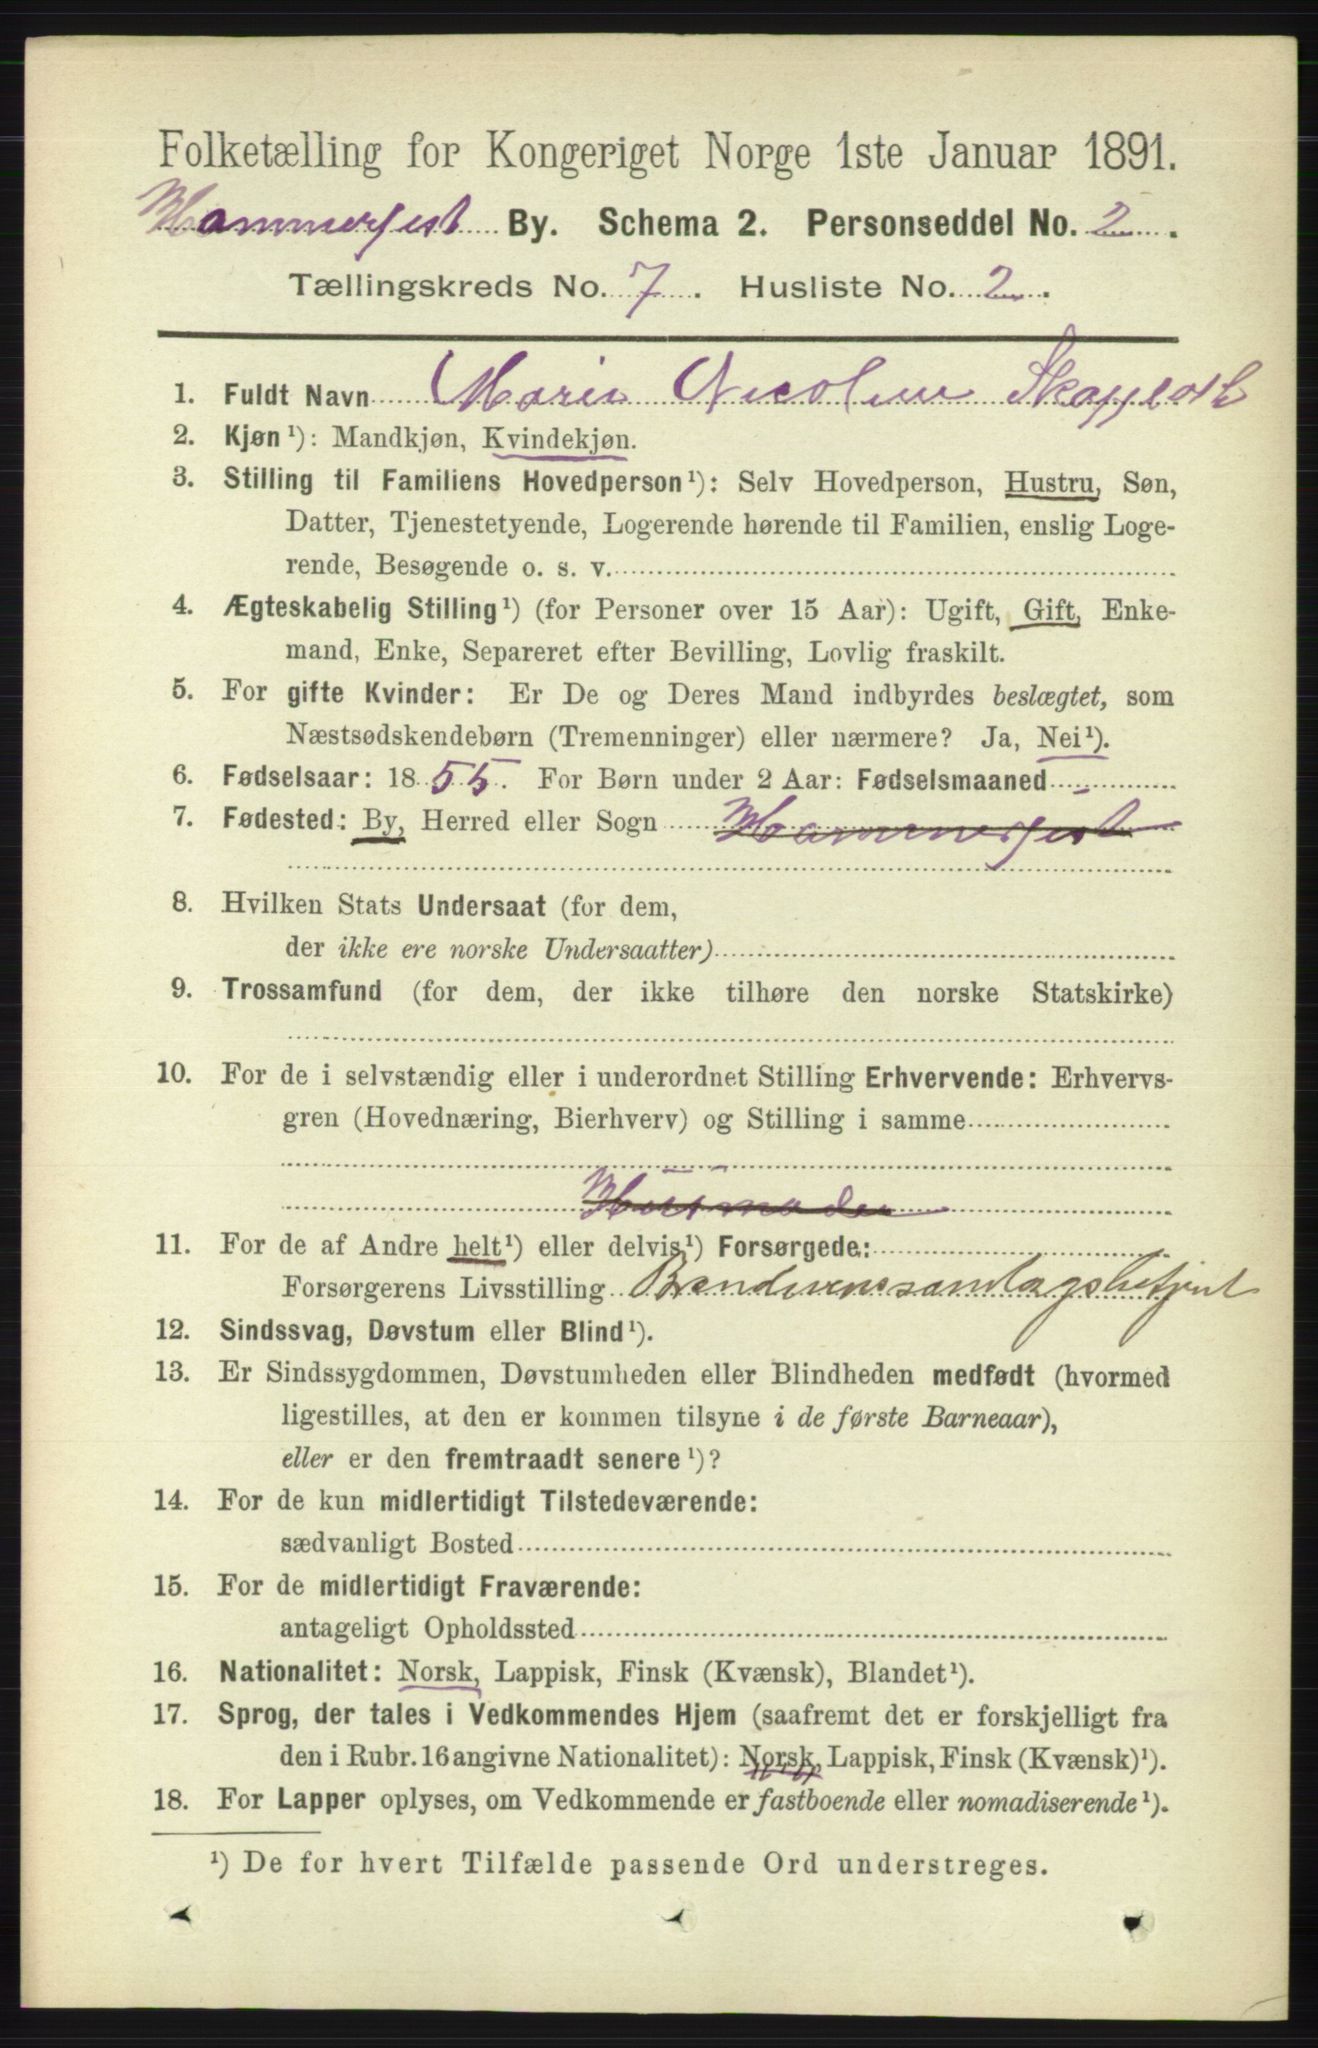 Folketælling for Kongeriget Norge 1ste Januar 1891.
Hammerfest By. Schema 2. Personseddel No. 2.
Tællingskreds No. 7. Husliste No. 2.
1. Fuldt Navn Marie Nicoline
2. Kjøn¹): Mandkjøn, Kvindekjøn.
3. Stilling til Familiens Hovedperson¹): Selv Hovedperson, Hustru, Søn,
Datter, Tjenestetyende, Logerende hørende til Familien, enslig Loge-
rende, Besøgende o. s. v.
4. Ægteskabelig Stilling¹) (for Personer over 15 Aar): Ugift, Gift, Enke-
mand, Enke, Separeret efter Bevilling, Lovlig fraskilt.
5. For gifte Kvinder: Er De og Deres Mand indbyrdes beslægtet, som
Næstsødskendebørn (Tremenninger) eller nærmere? Ja, Nei¹).
6. Fødselsaar: 1855. For Børn under 2 Aar: Fødselsmaaned
7. Fødested: By, Herred eller Sogn Hammerfest
8. Hvilken Stats Undersaat (for dem,
der ikke ere norske Undersaatter)
9. Trossamfund (for dem, der ikke tilhøre den norske Statskirke)
10. For de i selvstændig eller i underordnet Stilling Erhvervende: Erhvervs-
gren (Hovednæring, Bierhverv) og Stilling i samme
Husmoder
11. For de af Andre helt¹) eller delvis¹) Forsørgede:
Forsørgerens Livsstilling
12. Sindssvag, Døvstum eller Blind¹).
13. Er Sindssygdommen, Døvstumheden eller Blindheden medfødt (hvormed
ligestilles, at den er kommen tilsyne i de første Barneaar),
eller er den fremtraadt senere¹)?
14. For de kun midlertidigt Tilstedeværende:
sædvanligt Bosted
15. For de midlertidigt Fraværende:
antageligt Opholdssted
16. Nationalitet: Norsk, Lappisk, Finsk (Kvænsk), Blandet¹).
17. Sprog, der tales i Vedkommendes Hjem (saafremt det er forskjelligt fra
den i Rubr. 16 angivne Nationalitet): Norsk, Lappisk, Finsk (Kvænsk)¹).
18. For Lapper oplyses, om Vedkommende er fastboende eller nomadiserende¹).
¹) De for hvert Tilfælde passende Ord understreges.